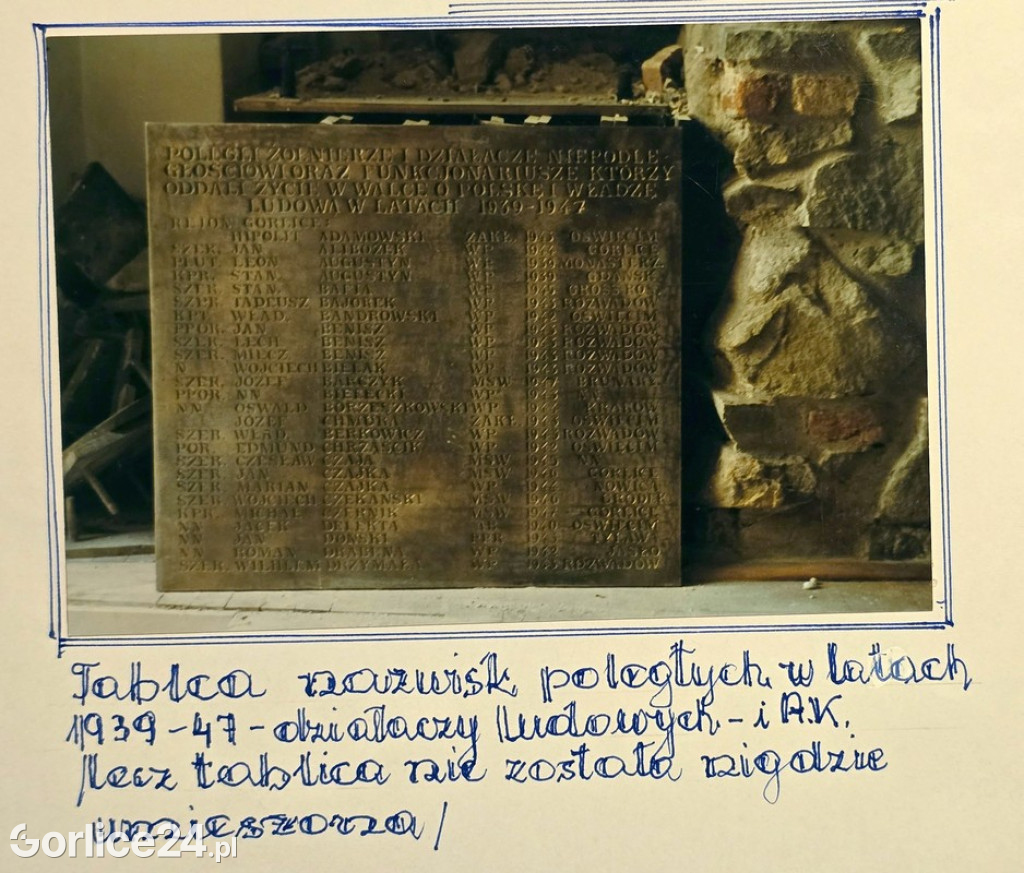 POLEGLI ŻOŁNIERZE I DZIAŁACZE NIEPODLE-
GŁOŚCIOWI ORAZ FUNKCJONARIUSZE KTÓRZY
ODDALI ŻYCIE W WALCE O POLSKĘ I WŁADZĘ
LUDOWĄ W LATACH 1939-1947
REJON GORLICE:
HIPOLIT ADAMOWSKI ZAKŁ. OŚWIĘCIM
SZER. JAN WP GORLICE
PLUT. LEON AUGUSTYN WP 1939
KPR. STAN. AUGUSTYN WP 1939 GDAŃSK
SZER. STAN. WP
SZER. TADEUSZ BAJOREK WP ROZWADÓW
KPT. WŁAD. BANDROWSKI WP OŚWIĘCIM
PPOR. JAN BENISZ WP ROZWADÓW
SZER. LECH BENISZ WP ROZWADÓW
SZER. MIECZ. BENISZ WP ROZWADÓW
N WOJCIECH BIELAK WP ROZWADÓW
SZER. JÓZEF BARCZYK MSW 1947 BRUNARY
PPOR. NN BIELECKI WP
NN OSWALD BORZESZKOWSKI WP KRAKÓW
JÓZEF CHMURA ZAKŁ. OŚWIĘCIM
SZER. WŁAD. BERKOWICZ WP ROZWADÓW
POR. EDMUND CHRZĄŚCIK WP OŚWIĘCIM
SZER. CZESŁAW MSW
SZER. JAN CZAJKA MSW GORLICE
SZER. MARIAN CZAJKA WP
SZER. WOJCIECH CZEKAŃSKI MSW
KPR. MICHAŁ CZERNIK MSW 1947 GORLICE
NN JACEK DELEKTA 1940 OŚWIĘCIM
NN JAN DOŃSKI PPR
NN ROMAN DRABENA WP JASŁO
SZER. WILHELM DRZYMAŁA WP ROZWADÓW
Tablca nazwisk poległych w latach
1939-47 - działaczy ludowych - i A.K.
/lecz tablica nie została nigdzie
umieszona/
Gorlice24.pl